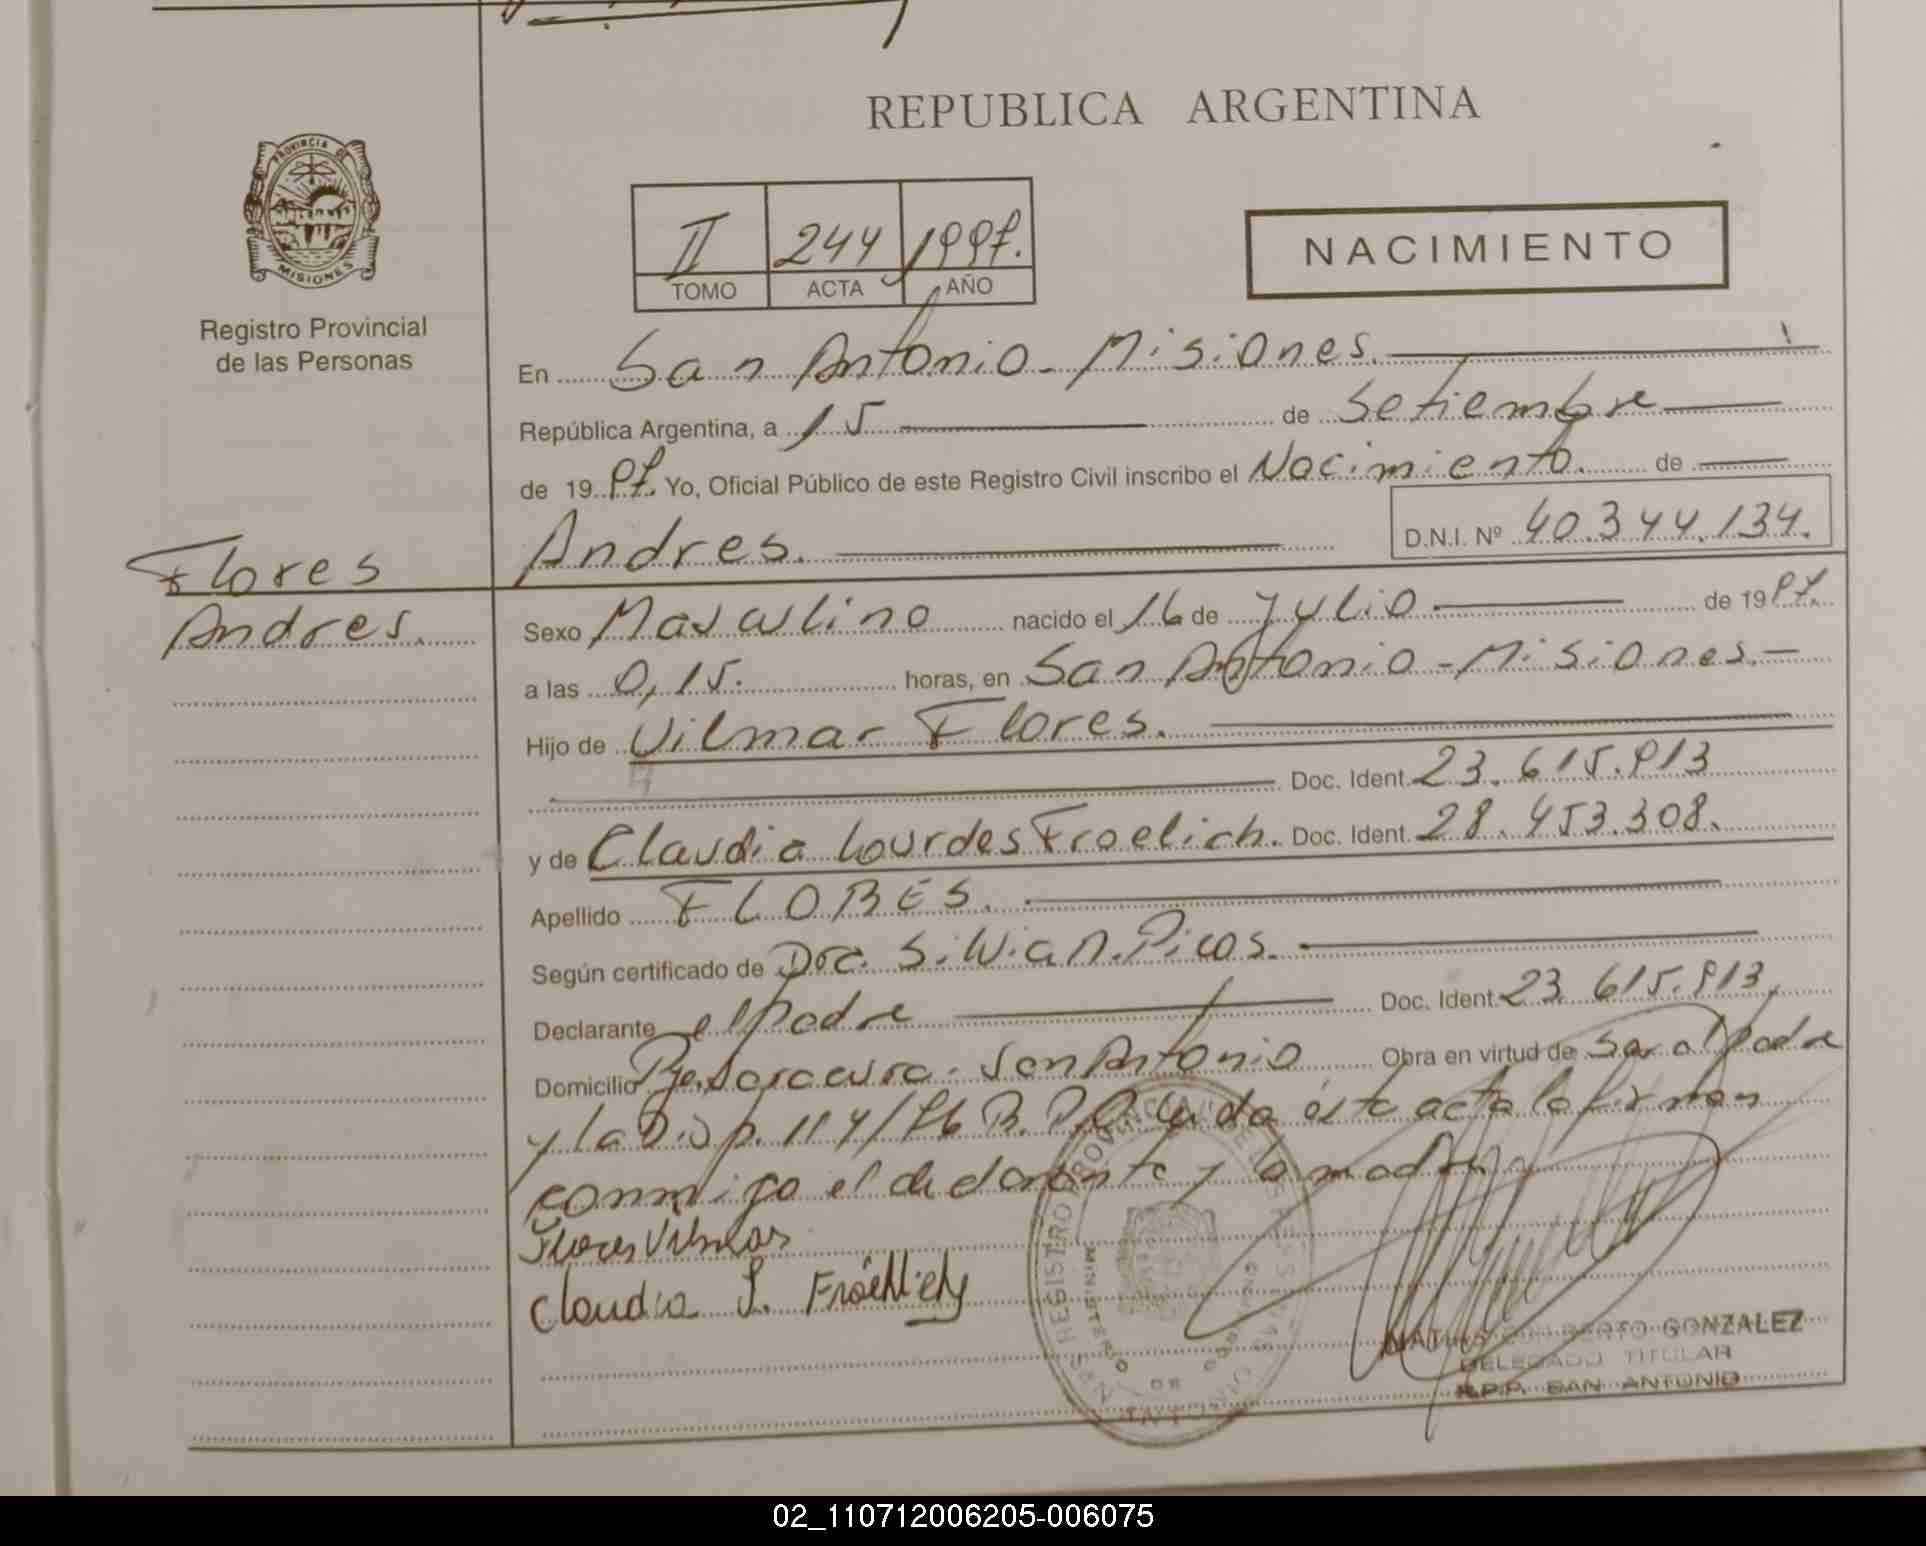 REPUBLICA ARGENTINA
PROVINCIA DE
MISIONES
Registro Provincial
de las Personas
II 244 1997.
TOMO ACTA AÑO
NACIMIENTO
En San Antonio - Misiones.
República Argentina, a 15 de Setiembre
de 19 97. Yo, Oficial Público de este Registro Civil inscribo el Nacimiento. de
Andres. D.N.I. Nº 40.344.134.
Flores
Andres.
Sexo Masculino nacido el 16 de Julio de 19 97.
a las 0,15. horas, en San Antonio - Misiones.-
Hijo de Vilmar Flores.
Doc. Ident. 23.615.913
y de Claudia Lourdes Froelich. Doc. Ident. 28.453.308.
Apellido FLORES.
Según certificado de Doc. Picos.
Declarante el Padre Doc. Ident. 23.615.913,
Domicilio San Antonio Obra en virtud de ser el Padre
y la Disp. 114/96 R.P.P. Leída este acta la firman
conmigo el declarante y la madre
Flores Vilmar
Claudia L.
GONZALEZ
DELEGADO TITULAR
R.P.P. SAN ANTONIO
02_110712006205-006075